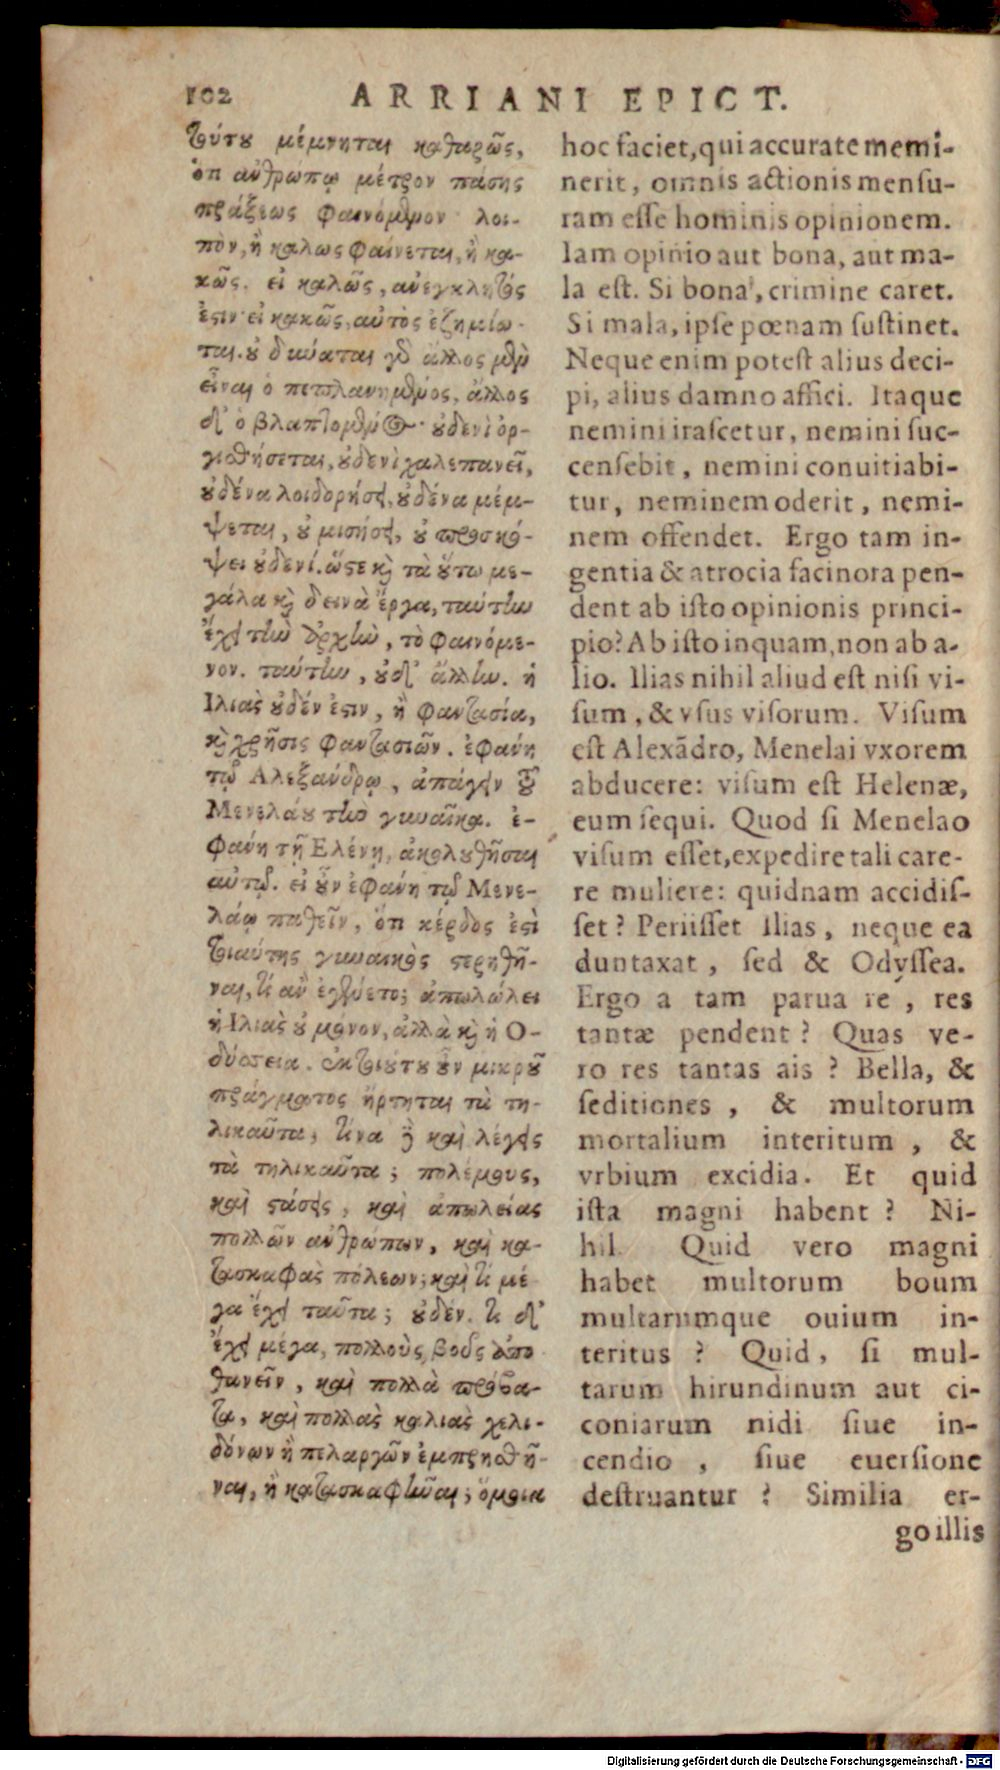 102 ARRIANI EPICT.
τούτου μέμνηται καθαρῶς,
ὅτι ἀνθρώπῳ μέτρον πάσης
πράξεως φαινόμενον λοι-
πὸν, ἢ καλῶς φαίνεται, ἢ κα-
κῶς. εἰ καλῶς, ἀνέγκλητός
ἐστιν· εἰ κακῶς, αὐτὸς ἐζημίω-
ται. οὐ δύναται γὸ ἄλλος μὲν
εἶναι ὁ πεπλανημένος, ἄλλος
δ’ ὁ βλαπτόμενος· οὐδενὶ ὀρ-
γισθήσεται, οὐδενὶ χαλεπανεῖ,
οὐδένα λοιδορήσει, οὐδένα μέμ-
ψεται, οὐ μισήσει, οὐ προσκό-
ψει οὐδενί. ὥστε καὶ τὰ οὕτω με-
γάλα καὶ δεινὰ ἔργα, ταύτην
ἔχει τὴν ἀρχὴν, τὸ φαινόμε-
νον. ταύτην, οὐδ’ ἄλλην. ἡ
Ιλιὰς οὐδέν ἐστιν, ἢ φαντασία,
καὶ χρῆσις φαντασιῶν. ἐφάνη
τῷ Αλεξάνδρῳ, ἀπάγειν τοῦ
Μενελάου τὴν γυναῖκα. ἐ-
φάνη τῇ Ελένῃ, ἀκολουθῆσαι
αὐτῷ. εἰ οὖν ἐφάνη τῷ Μενε-
λάῳ παθεῖν, ὅτι κέρδος ἐστὶ
τοιαύτης γυναικὸς στερηθῆ-
ναι, τί ἂν ἐγένετο; ἀπωλώλει
ἡ Ιλιὰς οὐ μόνον, ἀλλὰ καὶ ἡ Ο-
δύσσεια. ἐκ τοιούτου οὖν μικροῦ
πράγματος ἤρτηται τὰ τη-
λικαῦτα; τίνα δὲ καὶ λέγεις
τὰ τηλικαῦτα; πολέμους,
καὶ στάσεις, καὶ ἀπωλείας
πολλῶν ἀνθρώπων, καὶ κα-
τασκαφὰς πόλεων; καὶ τί μέ
γα ἔχει ταῦτα; οὐδέν. τί δ’
ἔχει μέγα, πολλοὺς βοῦς ἀπο
θανεῖν, καὶ πολλὰ πρόβα-
τα, καὶ πολλὰς καλιὰς χελι-
δόνων ἢ πελαργῶν ἐμπρησθῆ-
ναι, ἢ κατασκαφῆναι; ὅμοια
hoc faciet, qui accurate memi-
nerit, omnis actionis mensu-
ram esse hominis opinionem.
Iam opinio aut bona, aut ma-
la est. Si bona, crimine caret.
Si mala, ipse pœnam sustinet.
Neque enim potest alius deci-
pi, alius damno affici. Itaque
nemini irascetur, nemini suc-
censebit, nemini conuitiabi-
tur, neminem oderit, nemi-
nem offendet. Ergo tam in-
gentia & atrocia facinora pen-
dent ab isto opinionis princi-
pio? Ab isto inquam, non ab a-
lio. Ilias nihil aliud est nisi vi-
sum, & vsus visorum. Visum
est Alexãdro, Menelai vxorem
abducere: visum est Helenæ,
eum sequi. Quod si Menelao
visum esset, expedire tali care-
re muliere: quidnam accidis-
set? Periisset Ilias, neque ea
duntaxat, sed & Odyssea.
Ergo a tam parua re, res
tantæ pendent? Quas ve-
ro res tantas ais? Bella, &
seditiones, & multorum
mortalium interitum, &
vrbium excidia. Et quid
ista magni habent? Ni-
hil. Quid vero magni
habet multorum boum
multarumque ouium in-
teritus? Quid, si mul-
tarum hirundinum aut ci-
coniarum nidi siue in-
cendio, siue euersione
destruantur? Similia er-
go illis
Digitalisierung gefördert durch die Deutsche Forschungsgemeinschaft - DFG